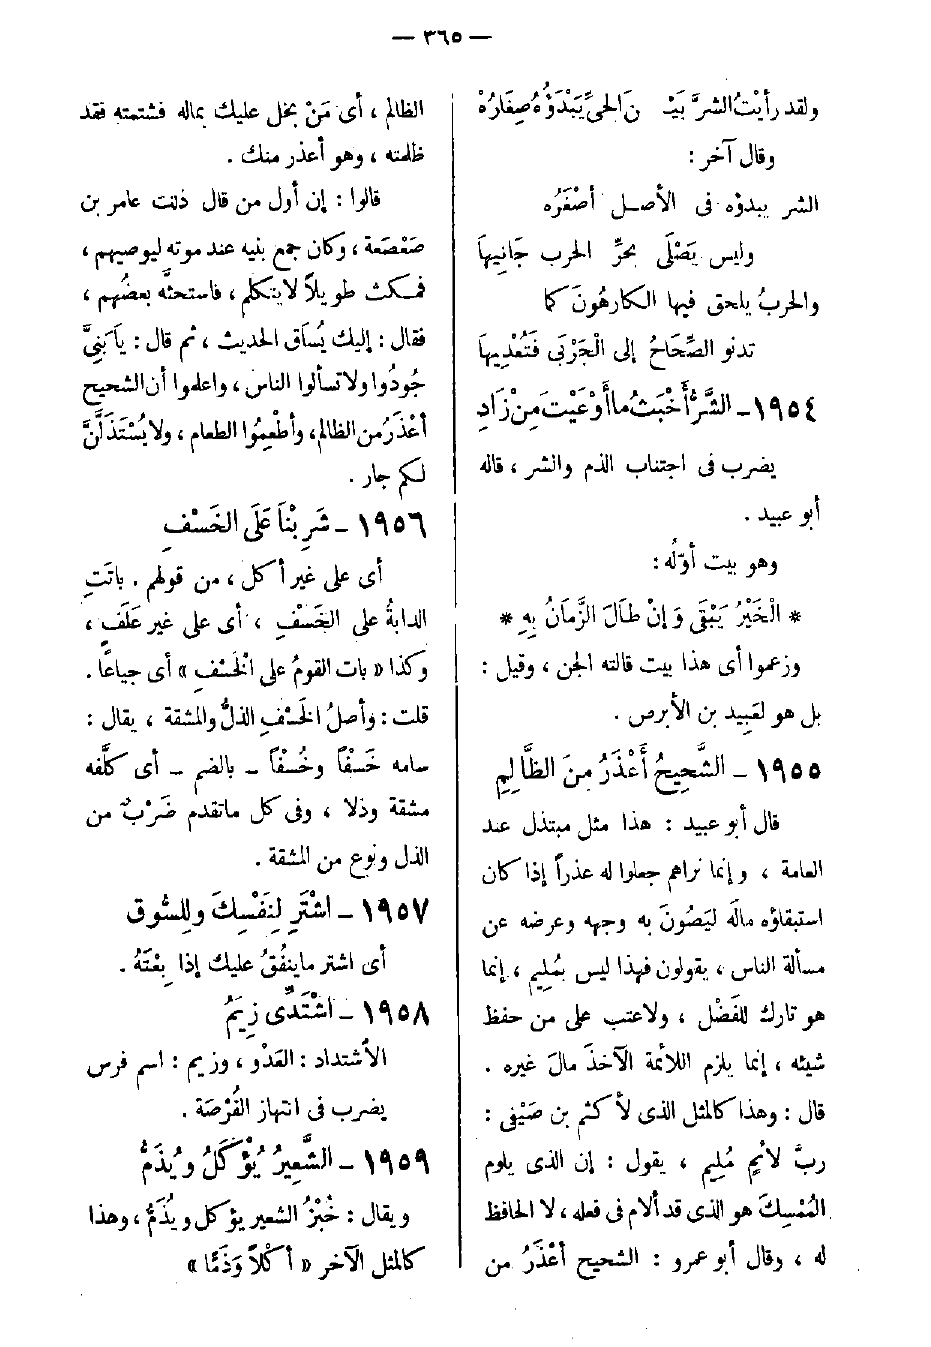 — ٣٦٥ —
ولقد رأيْتُ الشرَّ بَيْـ نَ الحىِّ يَبْدَؤُهُ صِغَارُهْ
وقال آخر :
الشر يبدؤه فى الأصـل أصْغَرُه
وليس يَصْلَى بحرِّ الحرب جَانِيهاَ
والحربُ يلحق فيها الكارهُونَ كما
تدنو الصِّحَاحُ إلى الْجَرْبَى فَتُعْدِيهاَ
١٩٥٤ - الشَّرُّ أَخْبَثُ ما أَوْعَيْتَ مِنْ زَادِ
يضرب فى اجتناب الذم والشر ، قاله
أبو عبيد .
وهو بيت أوّلُه :
* الْخَيْرُ يَبْقَى وَإنْ طَالَ الزَّمَانُ بِهِ *
وزعموا أى هذا بيت قالته الجن ، وقيل :
بل هو لعَبِيد بن الأبرص .
١٩٥٥ - الشَّحِيحُ أَعْذَرُ مِنَ الظَّالِمِ
قال أبو عبيد : هذا مثل مبتذل عند
العامة ، وإنما نراهم جعلوا له عذراً إذا كان
استبقاؤه مالَه ليَصُونَ به وجهه وعرضه عن
مسألة الناس ، يقولون فهذا ليس بمُلِيم ، إنما
هو تارك للفَضْل ، ولا عتب على من حفظ
شيئه ، إنما يلزم اللائمة الآخذَ مالَ غيره .
قال : وهذا كالمثل الذى لأكثم بن صَيْفى :
ربَّ لائمٍ مُلِيم ، يقول : إن الذى يلوم
المُمْسِكَ هو الذى قد ألام فى فعله ، لا الحافظ
له ، وقال أبو عمرو : الشحيح أعْذَرُ من
الظالم ، أى مَنْ بخل عليك بماله فشتمته فقد
ظلمته ، وهو أعذر منك .
قالوا : إن أول من قال ذلك عامر بن
صَعْصَعة ، وكان جمع بنيه عند موته ليوصيهم ،
فمكث طويلاً لا يتكلم ، فاستحثَّه بعضُهم ،
فقال : إليك يُسَاق الحديث ، ثم قال : ياَ بَنِىَّ
جُودُوا ولا تسألوا الناس ، واعلموا أن الشحيح
أعْذَرُ من الظالم، وأطْعِمُوا الطعام ، ولا يُسْتَذَلَّنَّ
لكم جار .
١٩٥٦ - شَرِبْناَ عَلَى الخَسْفِ
أى على غير أكل ، من قولهم . باتَتِ
الدابةُ على الخَسْفِ ، أى على غير عَلَفٍ ،
وكذا « بات القومُ على الْخَسْفِ » أى جياعًا .
قلت : وأصلُ الخَسْفِ الذلُّ والمشقة ، يقال :
سامه خَسْفاً وخُسْفاً - بالضم - أى كلَّفه
مشقة وذلا ، وفى كل ماتقدم ضَرْبٌ من
الذل ونوع من المشقة .
١٩٥٧ - اشْتَرِ لِنَفْسِكَ وللِسُّوق
أى اشتر ماينفُقُ عليك إذا بِعْتَهُ .
١٩٥٨ - اشْتَدِّى زِيَمُ
الأشتداد : العَدْو ، وزيم : اسم فرس
يضرب فى انتهاز الفُرْصَة .
١٩٥٩ - الشَّعِيرُ يُؤْكَلُ ويُذَمُّ
ويقال : خُبْزُ الشعير يؤكل ويُذَمُّ ، وهذا
كالمثل الآخر « أكْلاً وَذَمًّا »